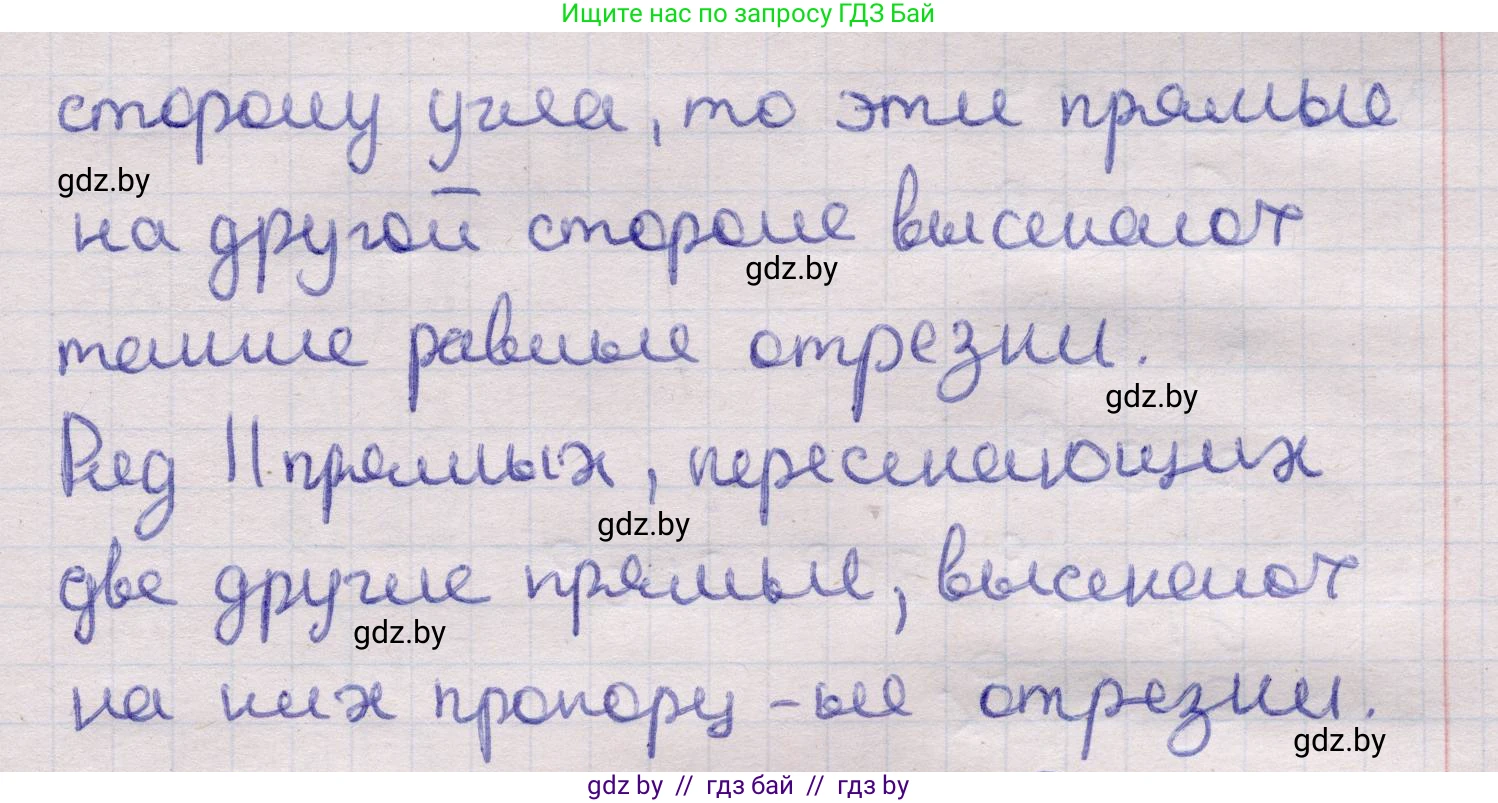 Ищите нас по запросу ГДЗ Бай
сторону угла, то эти прямые
gdz.by
на другой стороне высекают
gdz.by
также равные отрезки.
gdz.by
Ряд || прямых, пересекающих
gdz.by
две другие прямые, высекают
gdz.by
на них пропорц-ые отрезки.
gdz.by
gdz by // гдз бай // гдз by